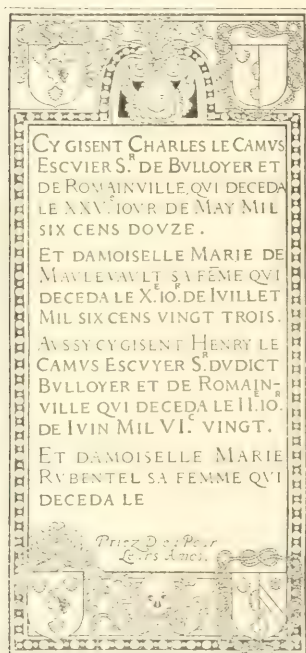 CY GISENT CHARLES LE CAMVS
ESCVIER S.R DE BVLLOYER ET
DE ROMAINVILLE, QVI DECEDA
LE XXV.E IOVR DE MAY MIL
SIX CENS DOVZE.
ET DAMOISELLE MARIE DE
MAVLEVAVLT SA FEME QVI
DECEDA LE X.E IO.R DE IVILLET
MIL SIX CENS VINGT TROIS.
AVSSY CY GISENT HENRY LE
CAMVS ESCVYER S.R DVDICT
BVLLOYER ET DE ROMAIN-
VILLE QVI DECEDA LE II.E IO.R
DE IVIN MIL VI.C VINGT.
ET DAMOISELLE MARIE
RVBENTEL SA FEMME QVI
DECEDA LE
Priez Pour
Leurs Ames.